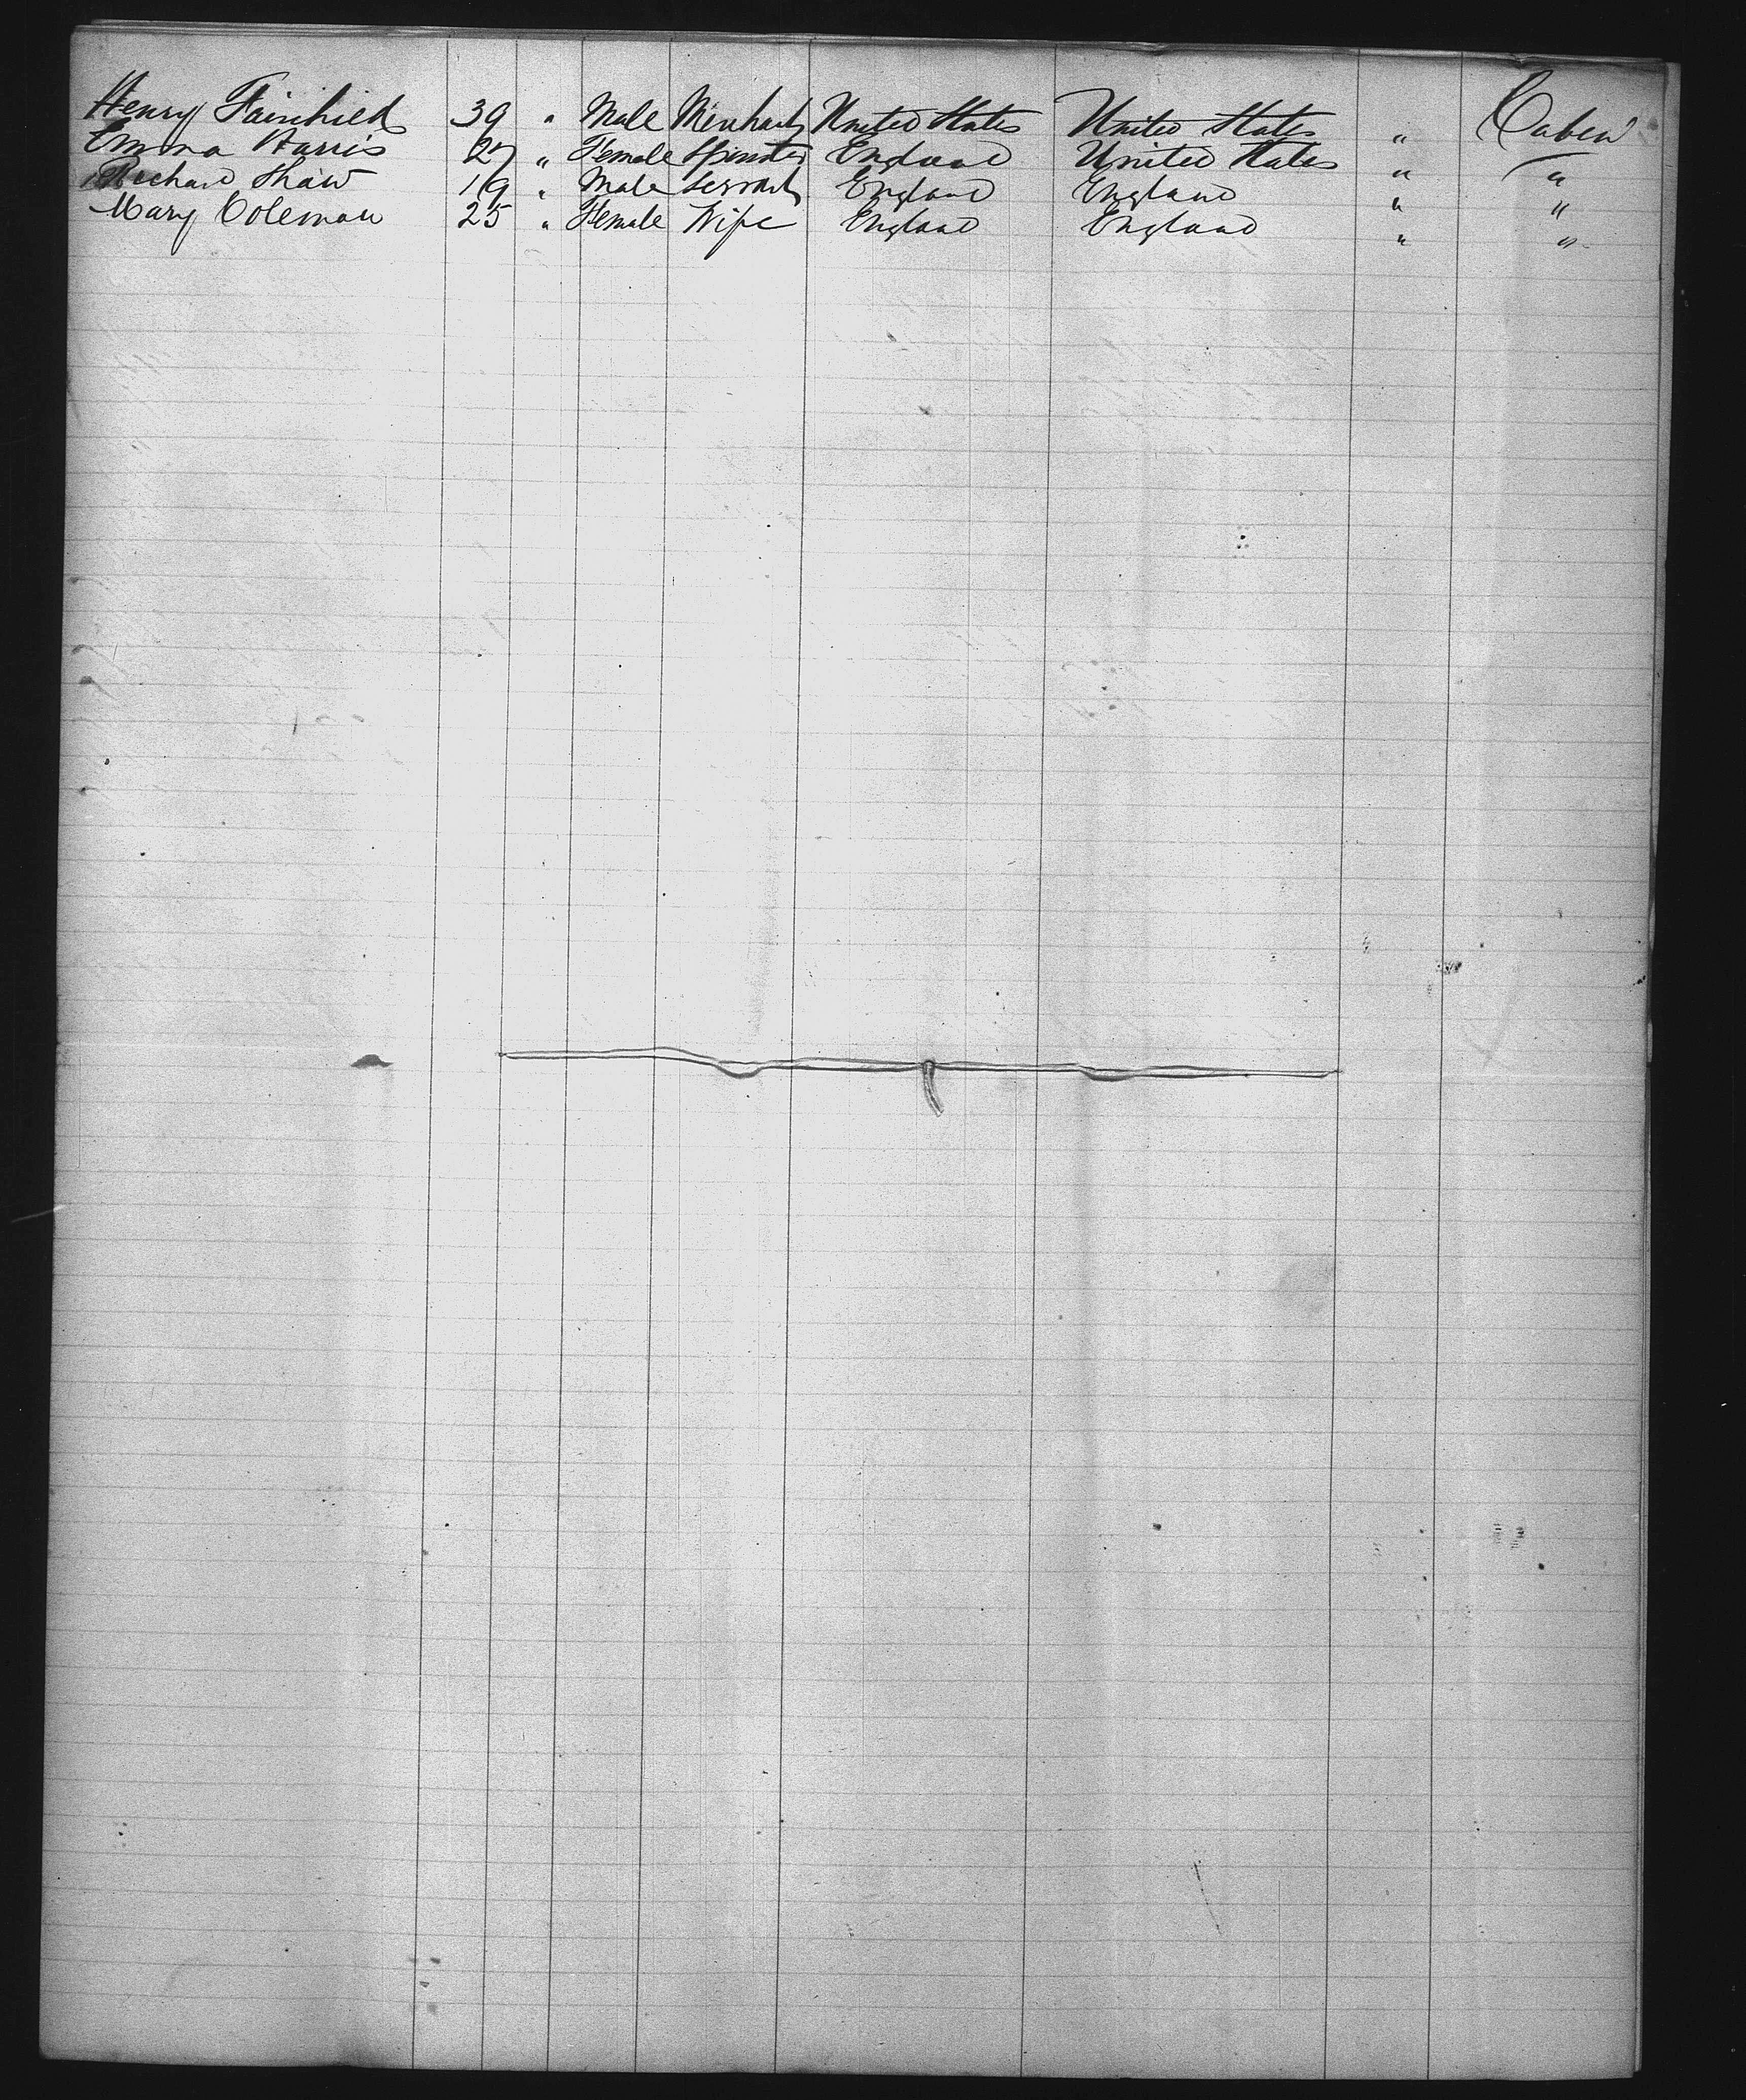 Henry Fairchild 39 " Male Merchant United States United States " Caben
Emma Harris 27 " Female Spinster England United States " "
Richard Shaw 19 " Male Servant England England " "
Mary Coleman 25 " Female Wife England England " "